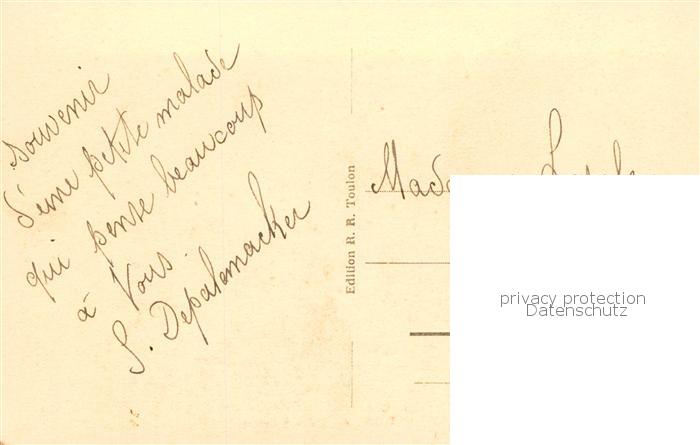 Souvenir
d'une petite malade
qui pense beaucoup
à Vous.
S. Depalemacker
Edition R. R. Toulon
privacy protection
Datenschutz